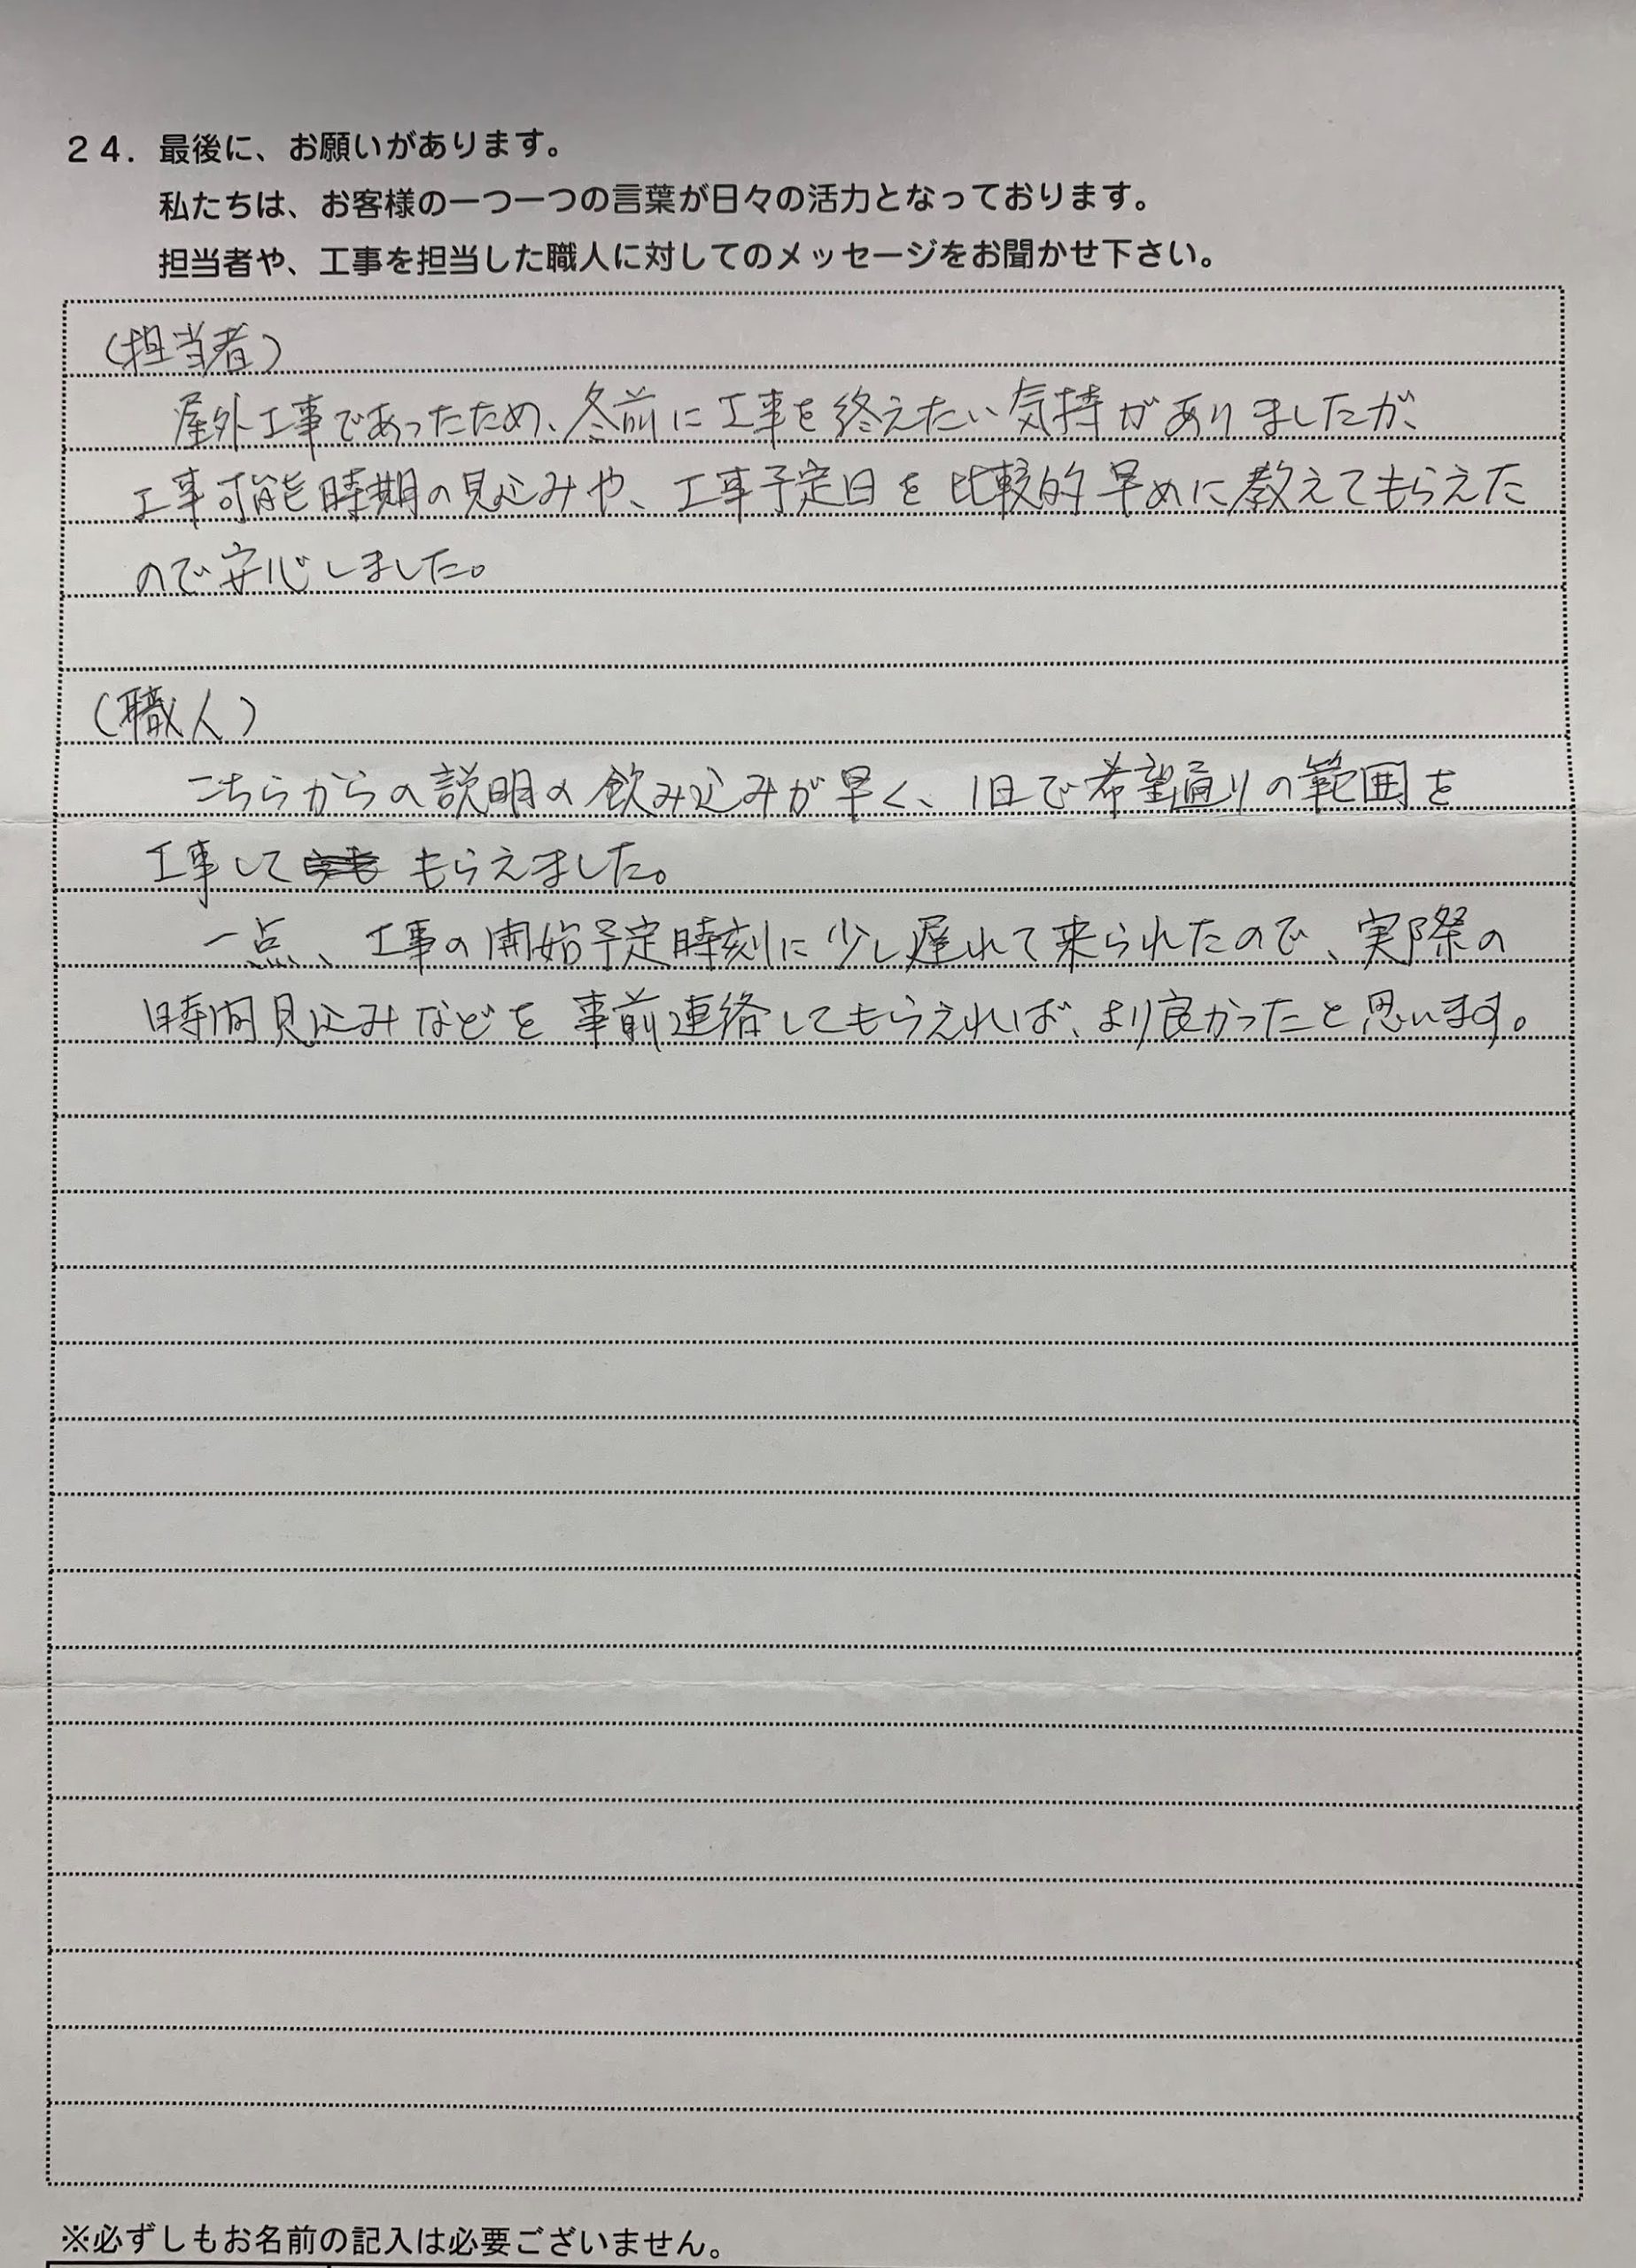 24. 最後に、お願いがあります。
私たちは、お客様の一つ一つの言葉が日々の活力となっております。
担当者や、工事を担当した職人に対してのメッセージをお聞かせ下さい。
(担当者)
屋外工事であったため、冬前に工事を終えたい気持がありましたが、
工事可能時期の見込みや、工事予定日を比較的早めに教えてもらえた
ので安心しました。
(職人)
こちらからの説明の飲み込みが早く、1日で希望通りの範囲を
工事してもらえました。
一点、工事の開始予定時刻に少し遅れて来られたので、実際の
時間見込みなどを事前連絡してもらえれば、より良かったと思います。
※必ずしもお名前の記入は必要ございません。